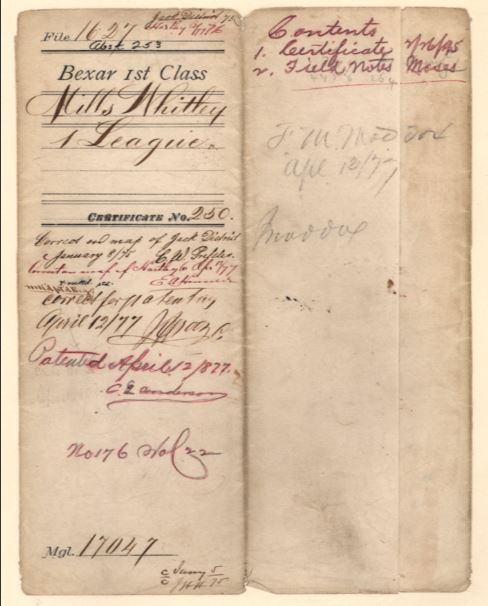 File 1627
Jack District 75
Hartley
Abst 253
Bexar 1st Class
Mills Whitley
1 League.
CERTIFICATE No. 250.
Correct on map of Jack District
January 8/75
Correct on map of Hartley Co Apr 7/77
Correct for patenting
April 12/77
Patented April 12/1877.
C E Anderson
No 176 Vol 22
Mgl. 17047
c/c Jany 5
75
Contents
1. Certificate 2/26/45
2. Field Notes Moses
F. M. Maddox
Apl 12/77
Maddox